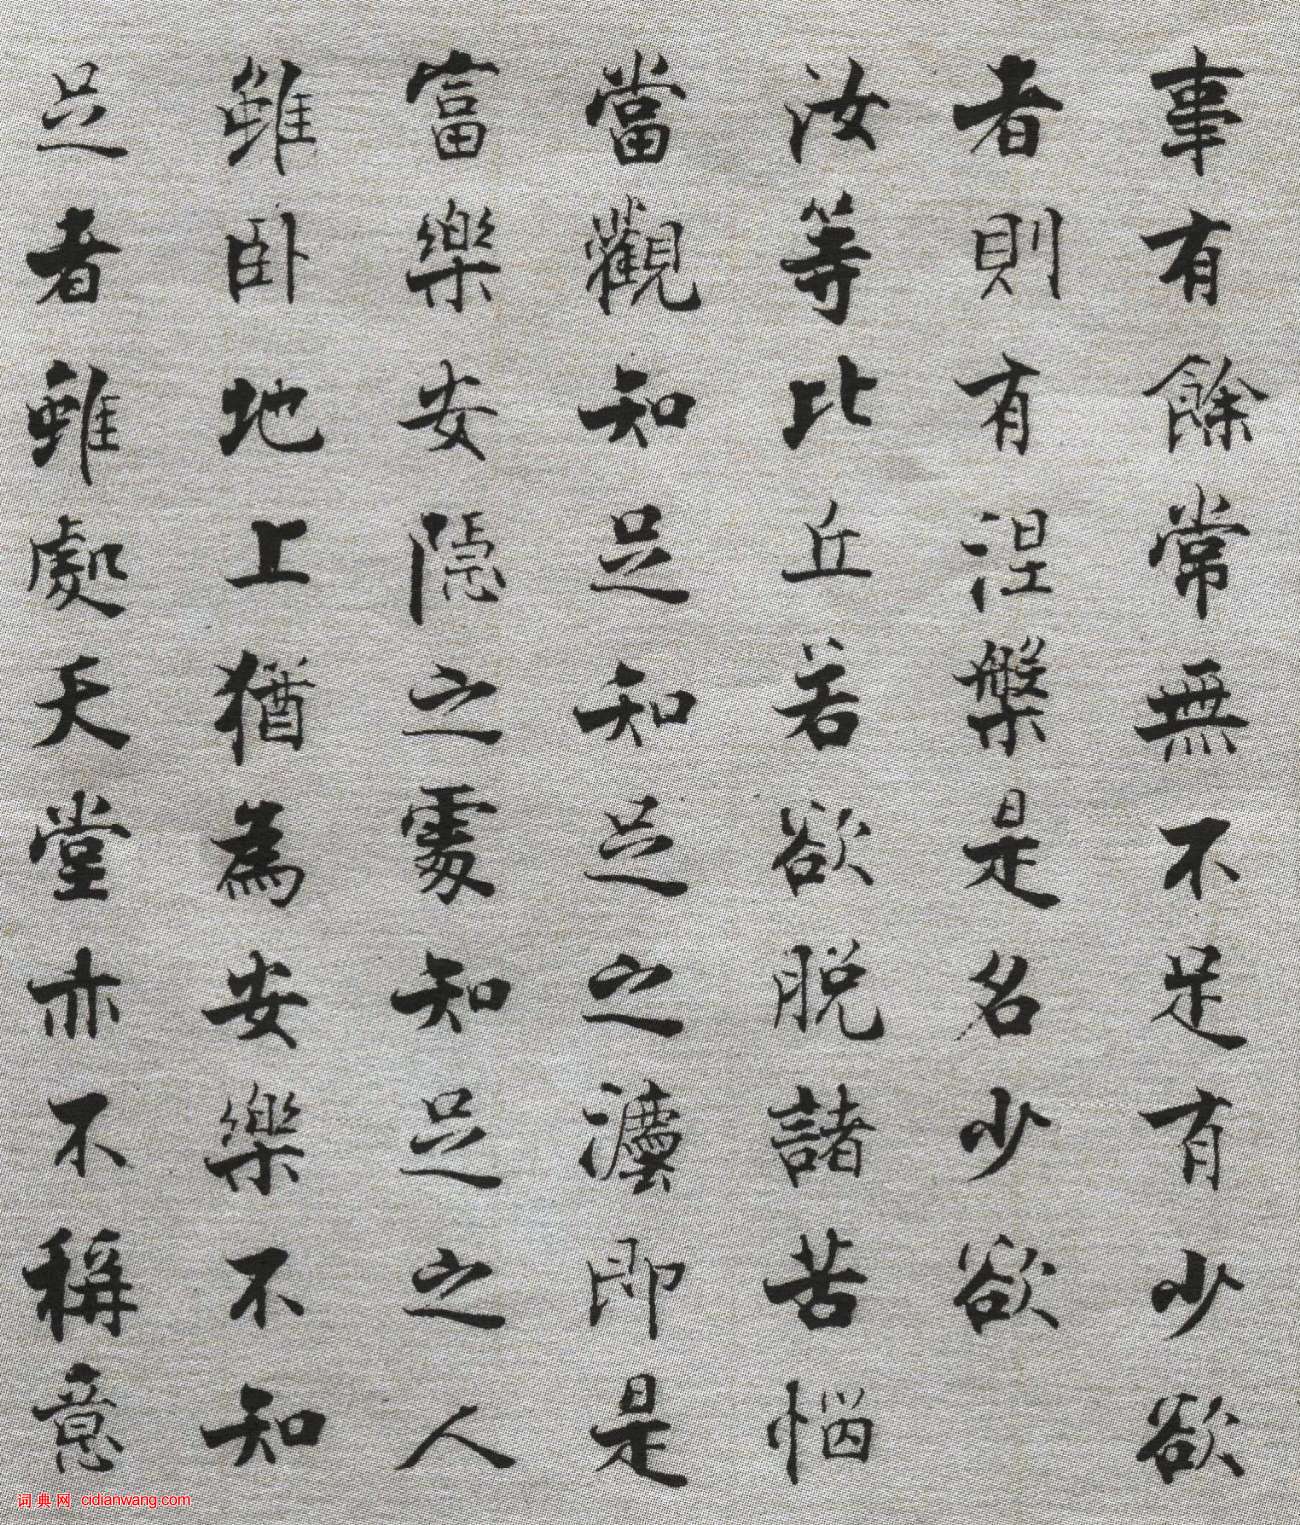 事有餘常無不足有少欲
者則有涅槃是名少欲
汝等比丘若欲脱諸苦惱
當觀知足知足之灋即是
富樂安隱之處知足之人
雖卧地上猶為安樂不知
足者雖處天堂亦不稱意
词典网 cidianwang.com